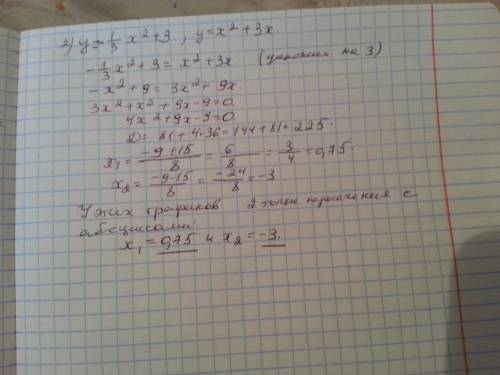 2) y = 1/3 x² + 3 , y = x² + 3x.
-1/3 x² + 3 = x² + 3x (умножим на 3)
-x² + 9 = 3x² + 9x
3x² + x² + 9x - 9 = 0.
4x² + 9x - 9 = 0.
D = 81 + 4·36 = 144 + 81 = 225.
x₁ = (-9 + 15)/8 = 6/8 = 3/4 = 0,75.
x₂ = (-9-15)/8 = -24/8 = -3
У этих графиков 2 точки пересечения с
абсциссами:
x₁ = 0,75 и x₂ = -3.